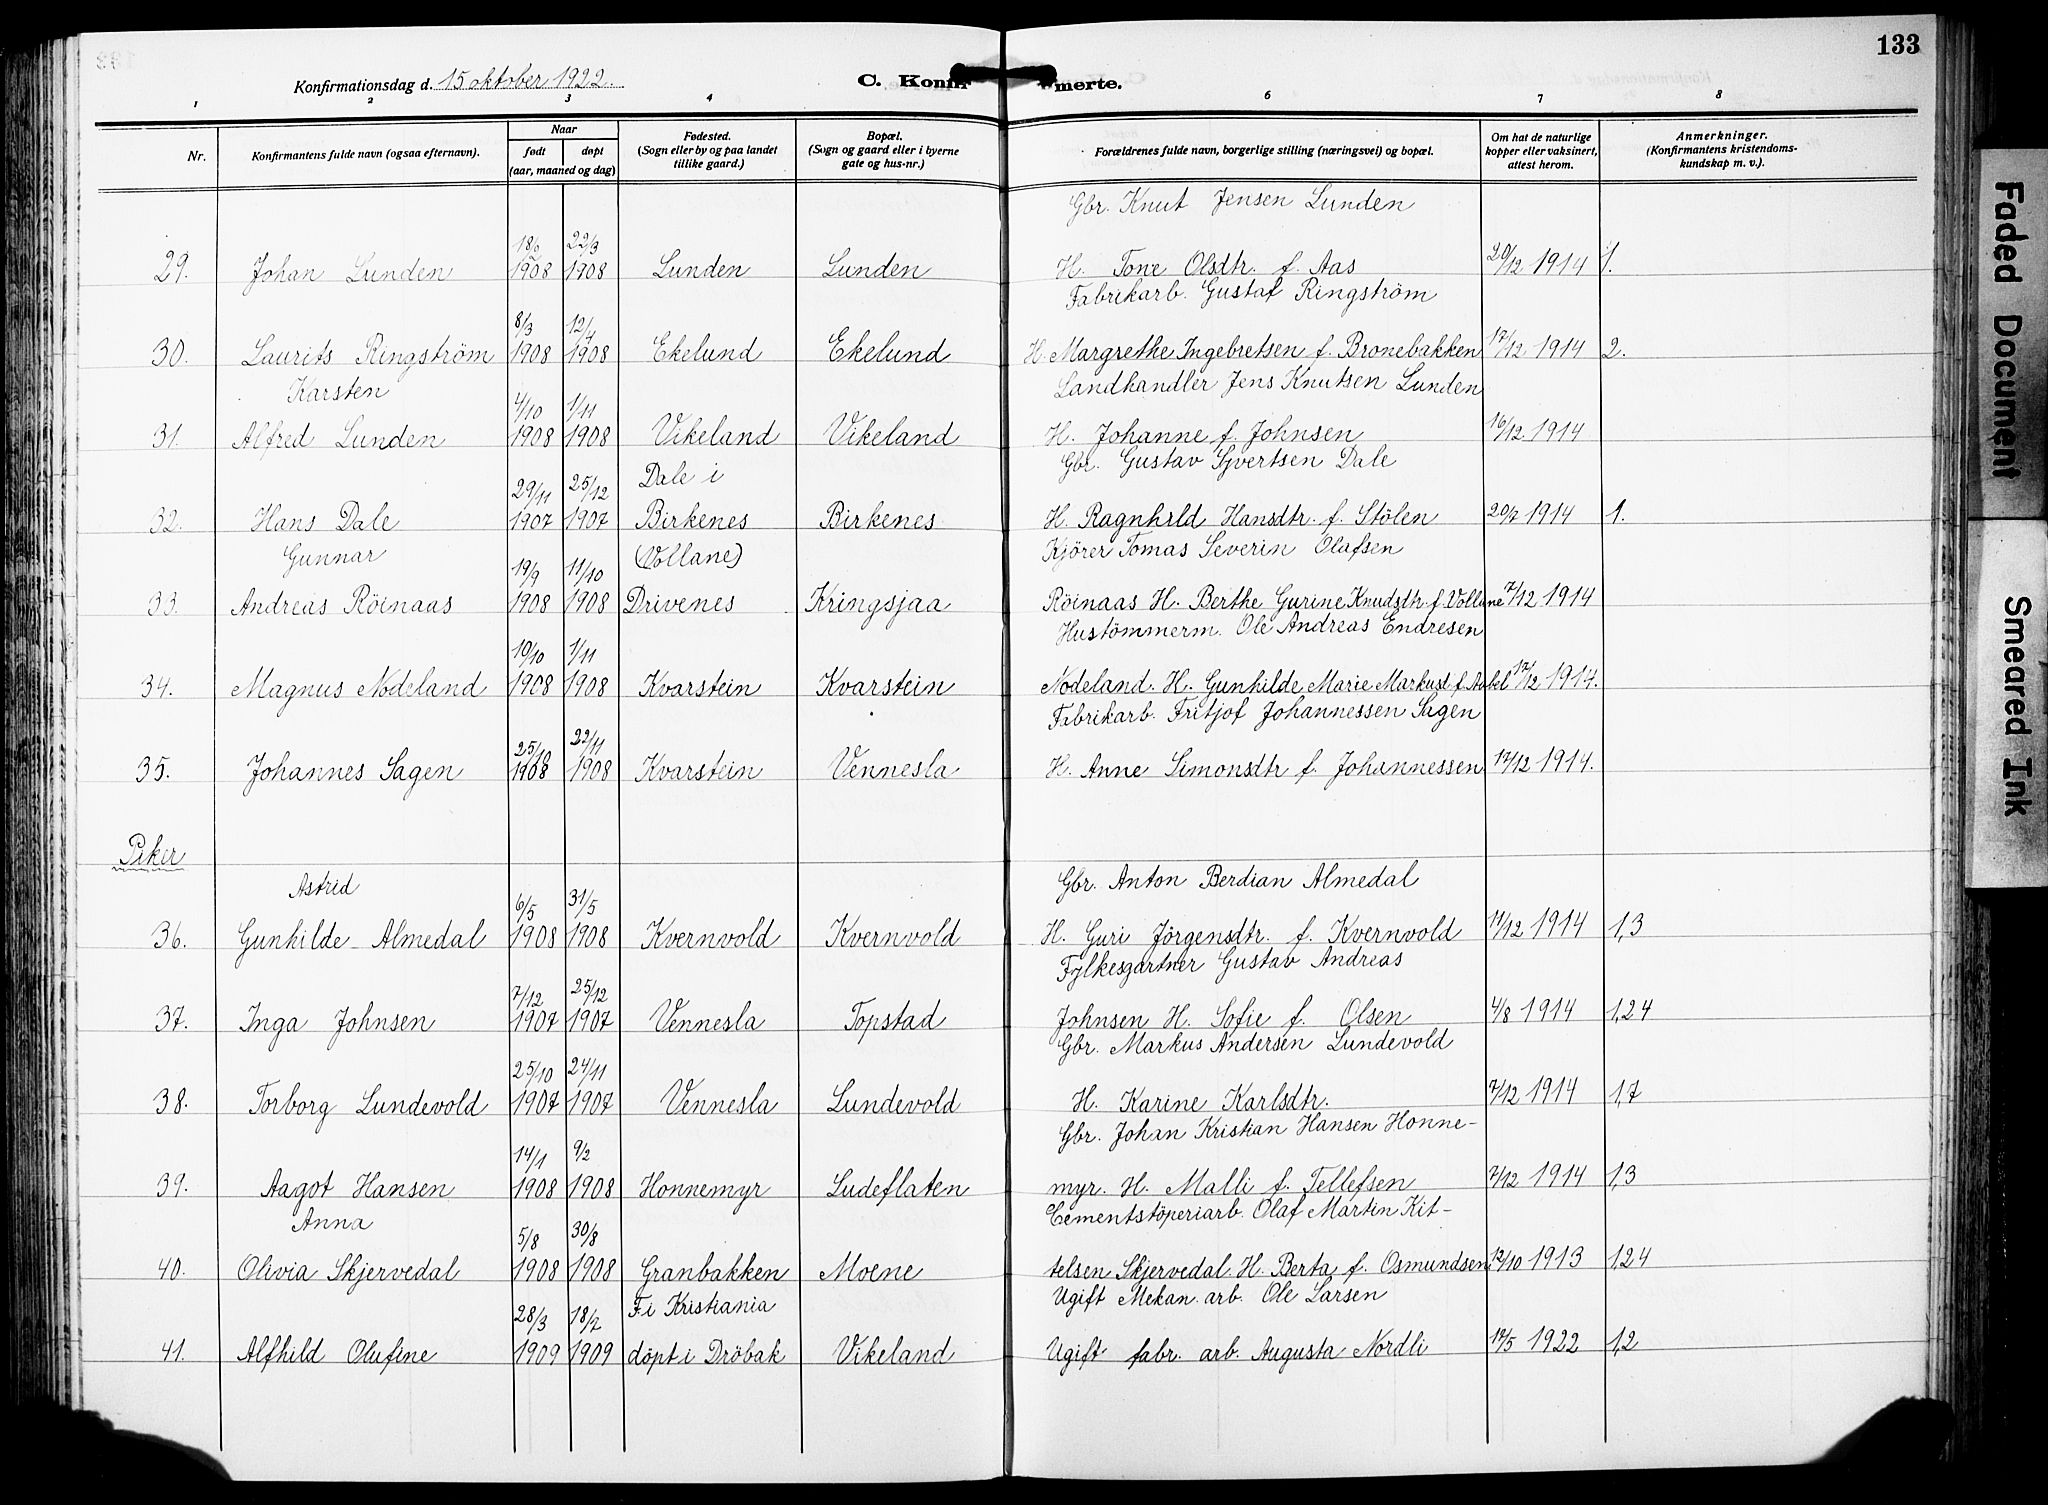 133
Konfirmationsdag d. 15 oktober 1922.
C. Konfirmerte.
1 2 3 4 6 7 8
Nr.
Konfirmantens fulde navn (ogsaa efternavn).
Naar
født døpt
(aar, maaned og dag)
Fødested.
(Sogn eller by og paa landet
tillike gaard.)
Bopæl.
(Sogn og gaard eller i byerne
gate og hus-nr.)
Forældrenes fulde navn, borgerlige stilling (næringsvei) og bopæl.
Om hat de naturlige
kopper eller vaksinert,
attest herom.
Anmerkninger.
(Konfirmantens kristendoms-
kundskap m. v.).
Gbr. Knut Jensen Lunden
18/2 22/3
29. Johan Lunden 1908 1908 Lunden Lunden H. Tone Olsdtr. f. Aas 20/12 1914 1.
Fabrikarb. Gustaf Ringström
8/3 12/4
30. Laurits Ringström 1908 1908 Ekelund Ekelund H. Margrethe Ingebretsen f. Bronebakken 17/12 1914 2.
Karsten Landhandler Jens Knutsen Lunden
4/10 1/11
31. Alfred Lunden 1908 1908 Vikeland Vikeland H. Johanne f. Johnsen 16/12 1914
Gbr. Gustav Syvertsen Dale
29/11 25/12 Dale i
32. Hans Dale 1907 1907 Birkenes Birkenes H. Ragnhild Hansdtr. f. Stölen 20/7 1914 1.
Gunnar (Vollane) Kjörer Tomas Severin Olafsen
19/9 11/10
33. Andreas Röinaas 1908 1908 Drivenes Kringsjaa Röinaas H. Berthe Gurine Knudsdtr. f. Vollane 7/12 1914
Hustömmerm. Ole Andreas Endresen
10/10 1/11
34. Magnus Nodeland 1908 1908 Kvarstein Kvarstein Nodeland. H. Gunhilde Marie Markusd. f. Aabel 17/12 1914.
Fabrikarb. Fritjof Johannessen Sagen
25/10 22/11
35. Johannes Sagen 1908 1908 Kvarstein Vennesla H. Anne Simonsdtr f. Johannessen 17/12 1914.
Piker
Astrid Gbr. Anton Berdian Almedal
6/5 31/5
36. Gunhilde Almedal 1908 1908 Kvernvold Kvernvold H. Guri Jörgensdtr. f. Kvernvold 11/12 1914 1,3
Fylkesgartner Gustav Andreas
7/12 25/12
37. Inga Johnsen 1907 1907 Vennesla Topstad Johnsen H. Sofie f. Olsen 4/8 1914 1,24
Gbr. Markus Andersen Lundevold
25/10 24/11
38. Torborg Lundevold 1907 1907 Vennesla Lundevold H. Karine Karlsdtr. 7/12 1914 1,7
Gbr. Johan Kristian Hansen Honne-
14/1 9/2
39. Aagot Hansen 1908 1908 Honnemyr Ludeflaten myr. H. Malli f. Tellefsen 7/12 1914 1,3
Anna Cementstöperiarb. Olaf Martin Kit-
5/8 30/8
40. Olivia Skjervedal 1908 1908 Granbakken Moene telsen Skjervedal. H. Berta f. Osmundsen 12/10 1913 1,24
28/3 18/7 F. i Kristiania Ugift Mekan. arb. Ole Larsen
41. Alfhild Olufine 1909 1909 döpt i Dröbak Vikeland Ugift fabr. arb. Augusta Nordli 17/5 1922 1,2
Faded Document
Smeared Ink